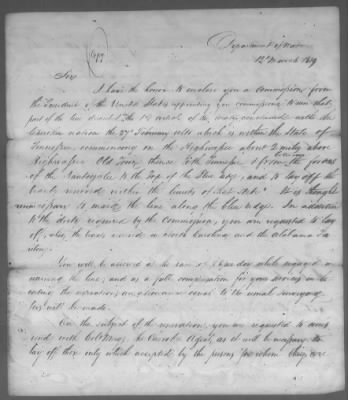 (Copy)
Department of War
12th March 1819
Sir
I have the honor to enclose you a Commission from
the President of the United States appointing you commissioner to run that
part of the line directed in the 1st article of the treaty concluded with the
Cherokee nation the 27th February ulto which is within the State of
Tennessee, commencing on the Highwassee about 2 miles above
Highwassee Old Town, thence to the Tennessee & from the
of the Nantayalee to the top of the Blue ridge; and to lay off the
tracts reserved within the limits of that State. It is thought
unnecessary to mark the line along the Blue ridge. In addition
to the duty required by the Commission, you are requested to lay
off, also, the tracts reserved in North Carolina and the Alabama Ter-
ritory.
You will be allowed at the rate of 8 $ per day while engaged in
running the line; and as a full compensation for your services in lo-
cating the reservations, an allowance equal to the usual surveying
fees will be made.
On the subject of the reservations, you are requested to corres-
pond with Col. Meigs, the Cherokee Agent, as it will be necessary to
lay off those only which accepted by the persons for whom they are